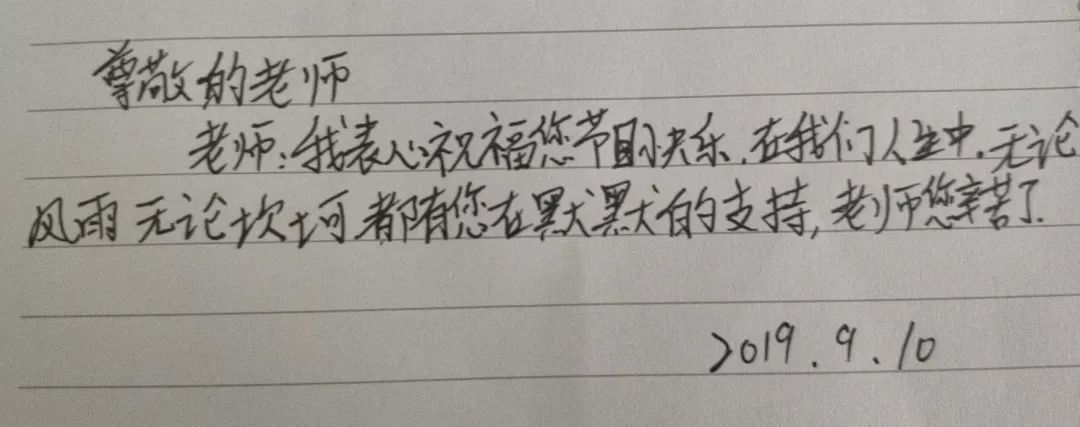 尊敬的老师
老师:我衷心祝福您节日快乐.在我们人生中.无论
风雨无论坎坷都有您在默默的支持,老师您辛苦了.
2019.9.10